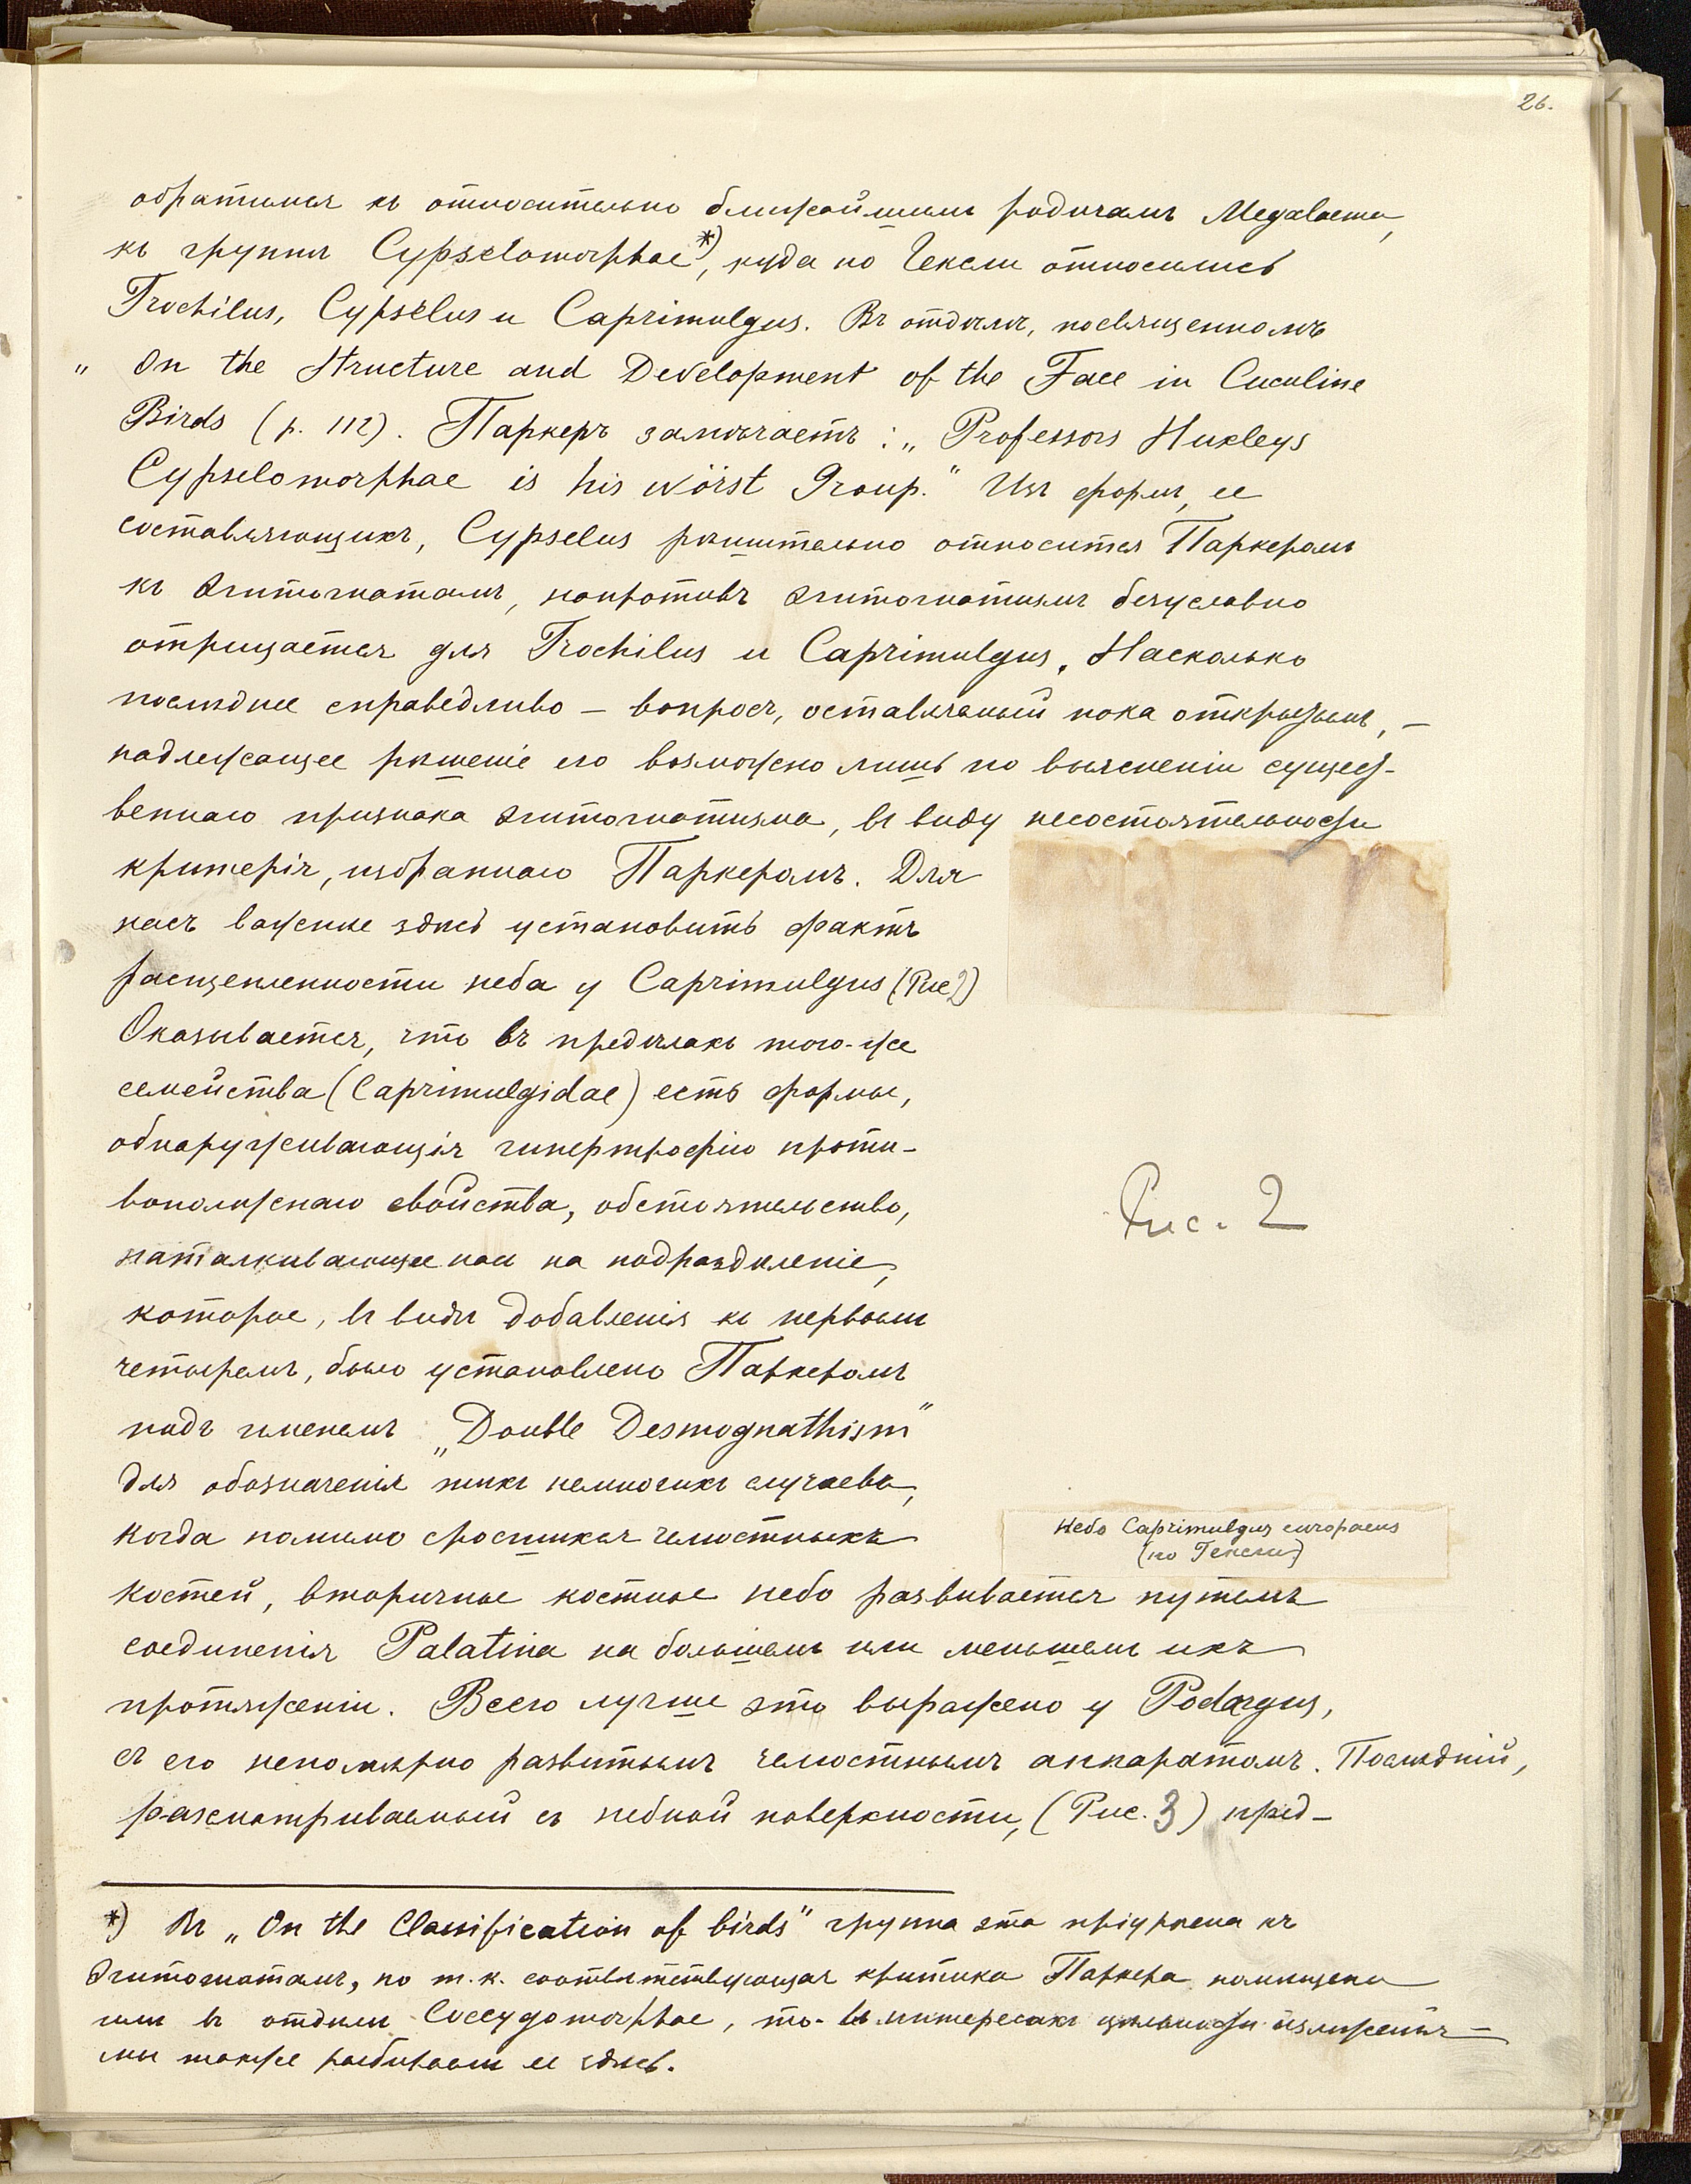 26.
обратимся къ относительно ближайшимъ родичамъ Megalaema,
къ группѣ Cypselomorphae*), куда по Гексли относились
Trochilus, Cypselus и Caprimulgus. Въ отдѣлѣ, посвященномъ
„ On the Structure and Development of the Face in Cuculine
Birds (p. 112). Паркеръ замѣчаетъ: „Professors Huxleys
Cypselomorphae is his worst Group." Изъ формъ, ее
составляющихъ, Cypselus рѣшительно относится Паркеромъ
къ эгитогнатамъ, напротивъ эгитогнатизмъ безусловно
отрицается для Trochilus и Caprimulgus. Насколько
послѣднее справедливо — вопросъ, оставляемый пока открытымъ, —
надлежащее рѣшеніе его возможно лишь по выясненіи сущест-
веннаго признака эгитогнатизма, въ виду несостоятельности
критерія, избраннаго Паркеромъ. Для
насъ важенъ здѣсь установить фактъ
расщепленности неба у Caprimulgus (Рис 2)
Оказывается, что въ предѣлахъ того-же
семейства (Caprimulgidae) есть формы,
обнаруживающія гипертрофію проти-
воположнаго свойства, обстоятельство,
наталкивающее насъ на подраздѣленіе,
которое, въ видѣ добавленія къ первымъ
четыремъ, было установлено Паркеромъ
подъ именемъ „Double Desmognathism"
для обозначенія тѣхъ немногихъ случаевъ,
когда помимо сросшихся челюстныхъ
костей, вторичное костное небо развивается путемъ
соединенія Palatina на большемъ или меньшемъ ихъ
протяженіи. Всего лучше это выражено у Podargus,
съ его непомѣрно развитымъ челюстнымъ аппаратомъ. Послѣдній,
разсматриваемый съ небной поверхности, (Рис. 3) пред-
Рис. 2
Небо Caprimulgus europaeus
(по Гексли)
*) Въ „On the Classification of birds" группа эта пріурочена къ
эгитогнатамъ, но т. к. соотвѣтствующая критика Паркера помѣщена
имъ въ отдѣлѣ Coccygomorphae, то въ интересахъ цѣльности изложенія —
мы также разбираемъ ее здѣсь.